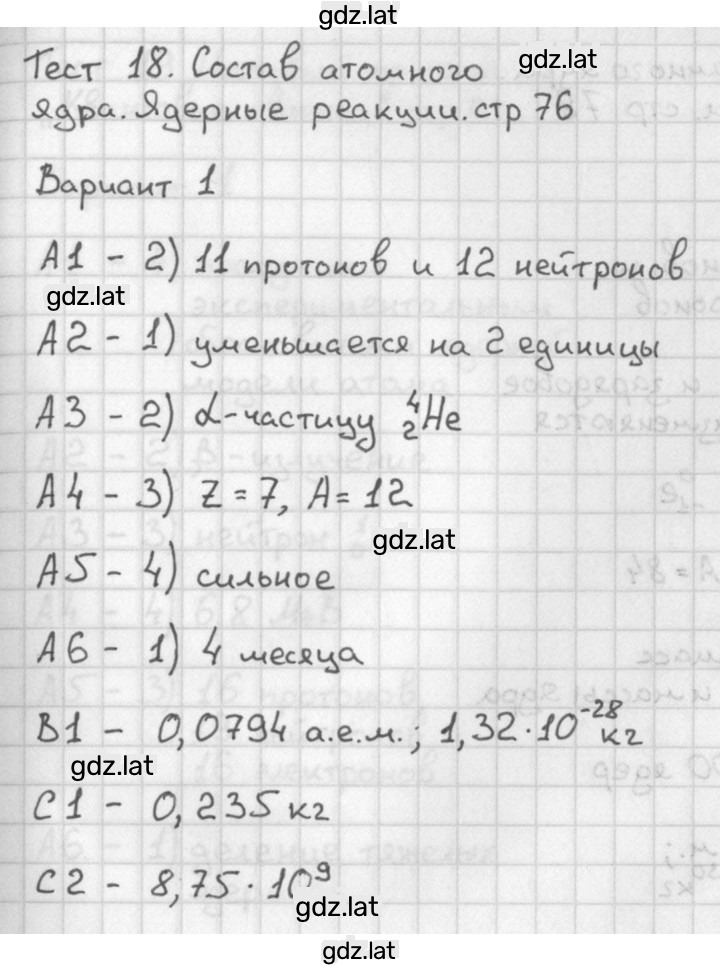 gdz.lat
Тест 18. Состав атомного gdz.lat
ядра. Ядерные реакции. стр 76
Вариант 1
А1 - 2) 11 протонов и 12 нейтронов
gdz.lat
А2 - 1) уменьшается на 2 единицы
А3 - 2) α-частицу ⁴₂He
А4 - 3) Z = 7, A = 12
gdz.lat
А5 - 4) сильное
А6 - 1) 4 месяца
В1 - 0,0794 а.е.м.; 1,32·10⁻²⁸ кг
gdz.lat
С1 - 0,235 кг
С2 - 8,75·10⁹
gdz.lat
gdz.lat